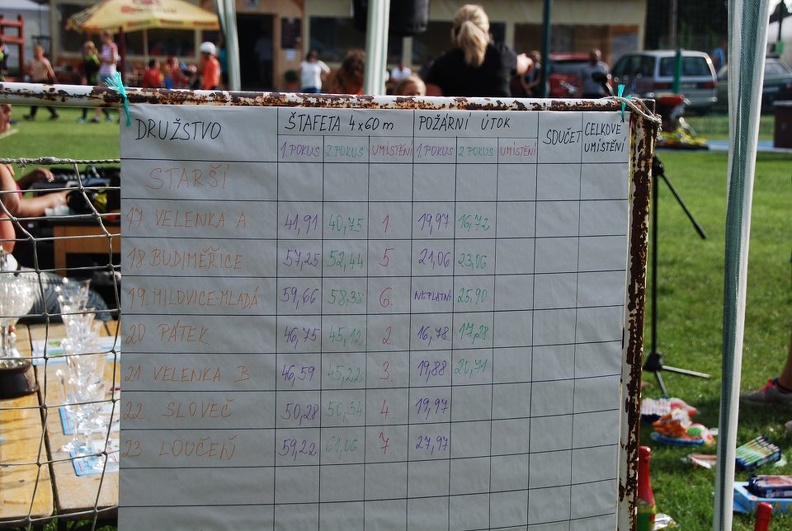 DRUŽSTVO ŠTAFETA 4x60m POŽÁRNÍ ÚTOK SOUČET CELKOVÉ UMÍSTĚNÍ
1.POKUS 2.POKUS UMÍSTĚNÍ 1.POKUS 2.POKUS UMÍSTĚNÍ
STARŠÍ
17 VELENKA A 41,91 40,75 1. 19,97 16,72
18. BUDIMĚŘICE 57,25 52,44 5 21,06 23,06
19. MILOVICE-MLADÁ 59,66 58,38 6. NEPLATNÝ 25,90
20 PÁTEK 46,75 45,12 2. 16,78 17,28
21 VELENKA B 46,59 45,22 3. 19,88 20,71
22 SLOVEČ 50,28 50,34 4 19,97
23 LOUČEŇ 59,22 61,06 7 27,97